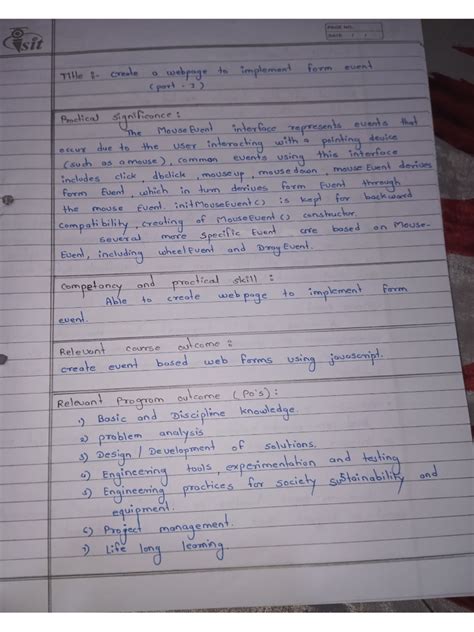 sit
PAGE NO.
DATE / /
Title :- create a webpage to implement form event
(part - 2)
Practical significance :
The MouseEvent interface represents events that
occur due to the user interacting with a pointing device
(such as a mouse), common events using this interface
includes click, dbclick, mouseup, mousedown, mouseEvent derives
form Event, which in turn derives form Event through
the mouse Event. initMouseEvent() is kept for backward
compatibility, creating of MouseEvent() constructor.
Several more specific Event are based on Mouse-
Event, including wheelEvent and DragEvent.
competancy and practical skill :
Able to create webpage to implement form
event.
Relevant course outcome :
create event based web forms using javascript.
Relevant Program outcome (Po's) :
1) Basic and Discipline knowledge.
2) problem analysis
3) Design / Development of solutions.
4) Engineering tools, experimentation and testing
5) Engineering practices for society sustainability and
equipment.
6) Project management.
7) Life long learning.